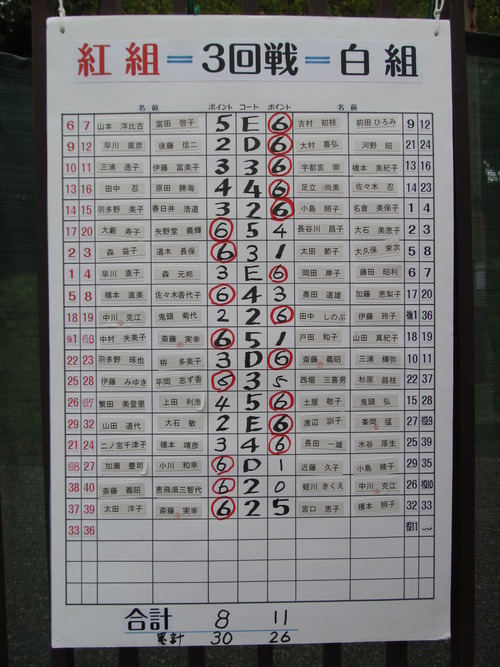 紅組=3回戦=白組
名前 ポイント コート ポイント 名前
6 7 山本 洋比古 富田 啓子 5 E 6 吉村 初枝 前田 ひろみ 9 12
9 12 早川 直彦 後藤 信二 2 D 6 大村 喜弘 河野 昭 21 24
10 11 三浦 逸子 伊藤 富美子 3 3 6 宇都宮 崇 橋本 美紀子 13 16
13 16 田中 忍 原田 勝海 4 4 6 足立 尚美 佐々木 忍 14 23
14 15 羽多野 美子 春日井 浩道 3 2 6 小島 照子 名倉 美保子 1 4
17 20 大藪 寿子 矢野堂 義輝 6 5 4 長谷川 昌子 大石 美恵子 2 3
2 3 森 益子 道木 長保 6 3 1 太田 節子 大久保 栄次 5 8
1 4 早川 直子 森 元邦 3 E 6 岡田 岸子 藤田 昭利 6 7
5 8 橋本 直美 佐々木香代子 6 4 3 奥田 道雄 加藤 恵梨子 17 20
18 19 中川 克江 鬼頭 菊代 2 2 6 田中 しのぶ 伊藤 玲子 後1 36
後1 中村 夫美子 斎藤 実幸 6 5 1 戸田 和子 山田 真紀子 18 19
22 23 羽多野 琢也 椨 多美子 3 D 6 斎藤 義昭 三浦 輝弥 10 11
25 28 伊藤 みゆき 平岡 志ず香 6 3 5 西堀 三喜男 杉原 昌枝 22 37
26 繁田 美登里 上田 利浩 4 5 6 土屋 敬子 鬼頭 弘 15 28
29 32 山田 道代 大石 敏 2 E 6 渡辺 訓子 峯岡 猛 27
21 24 二ノ宮千津子 橋本 靖彦 3 4 6 長田 一雄 水谷 厚生 25 39
27 加瀬 豊司 小川 和幸 6 D 1 近藤 久子 小島 綾子 29 35
38 40 斎藤 義昭 恵飛須三智代 6 2 0 蛭川 きくえ 中川 克江 26
37 39 太田 洋子 斎藤 実幸 6 2 5 宮口 恵子 橋本 照子 32 33
33 36
合計 8 11
累計 30 26